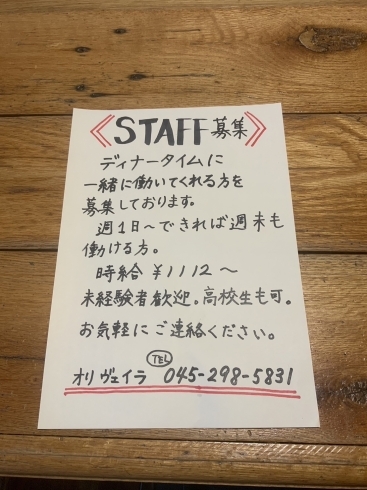 《STAFF募集》
ディナータイムに
一緒に働いてくれる方を
募集しております。
週1日〜できれば週末も
働ける方。
時給 ¥1112〜
未経験者歓迎。高校生も可。
お気軽にご連絡ください。
オリヴェイラ TEL 045-298-5831